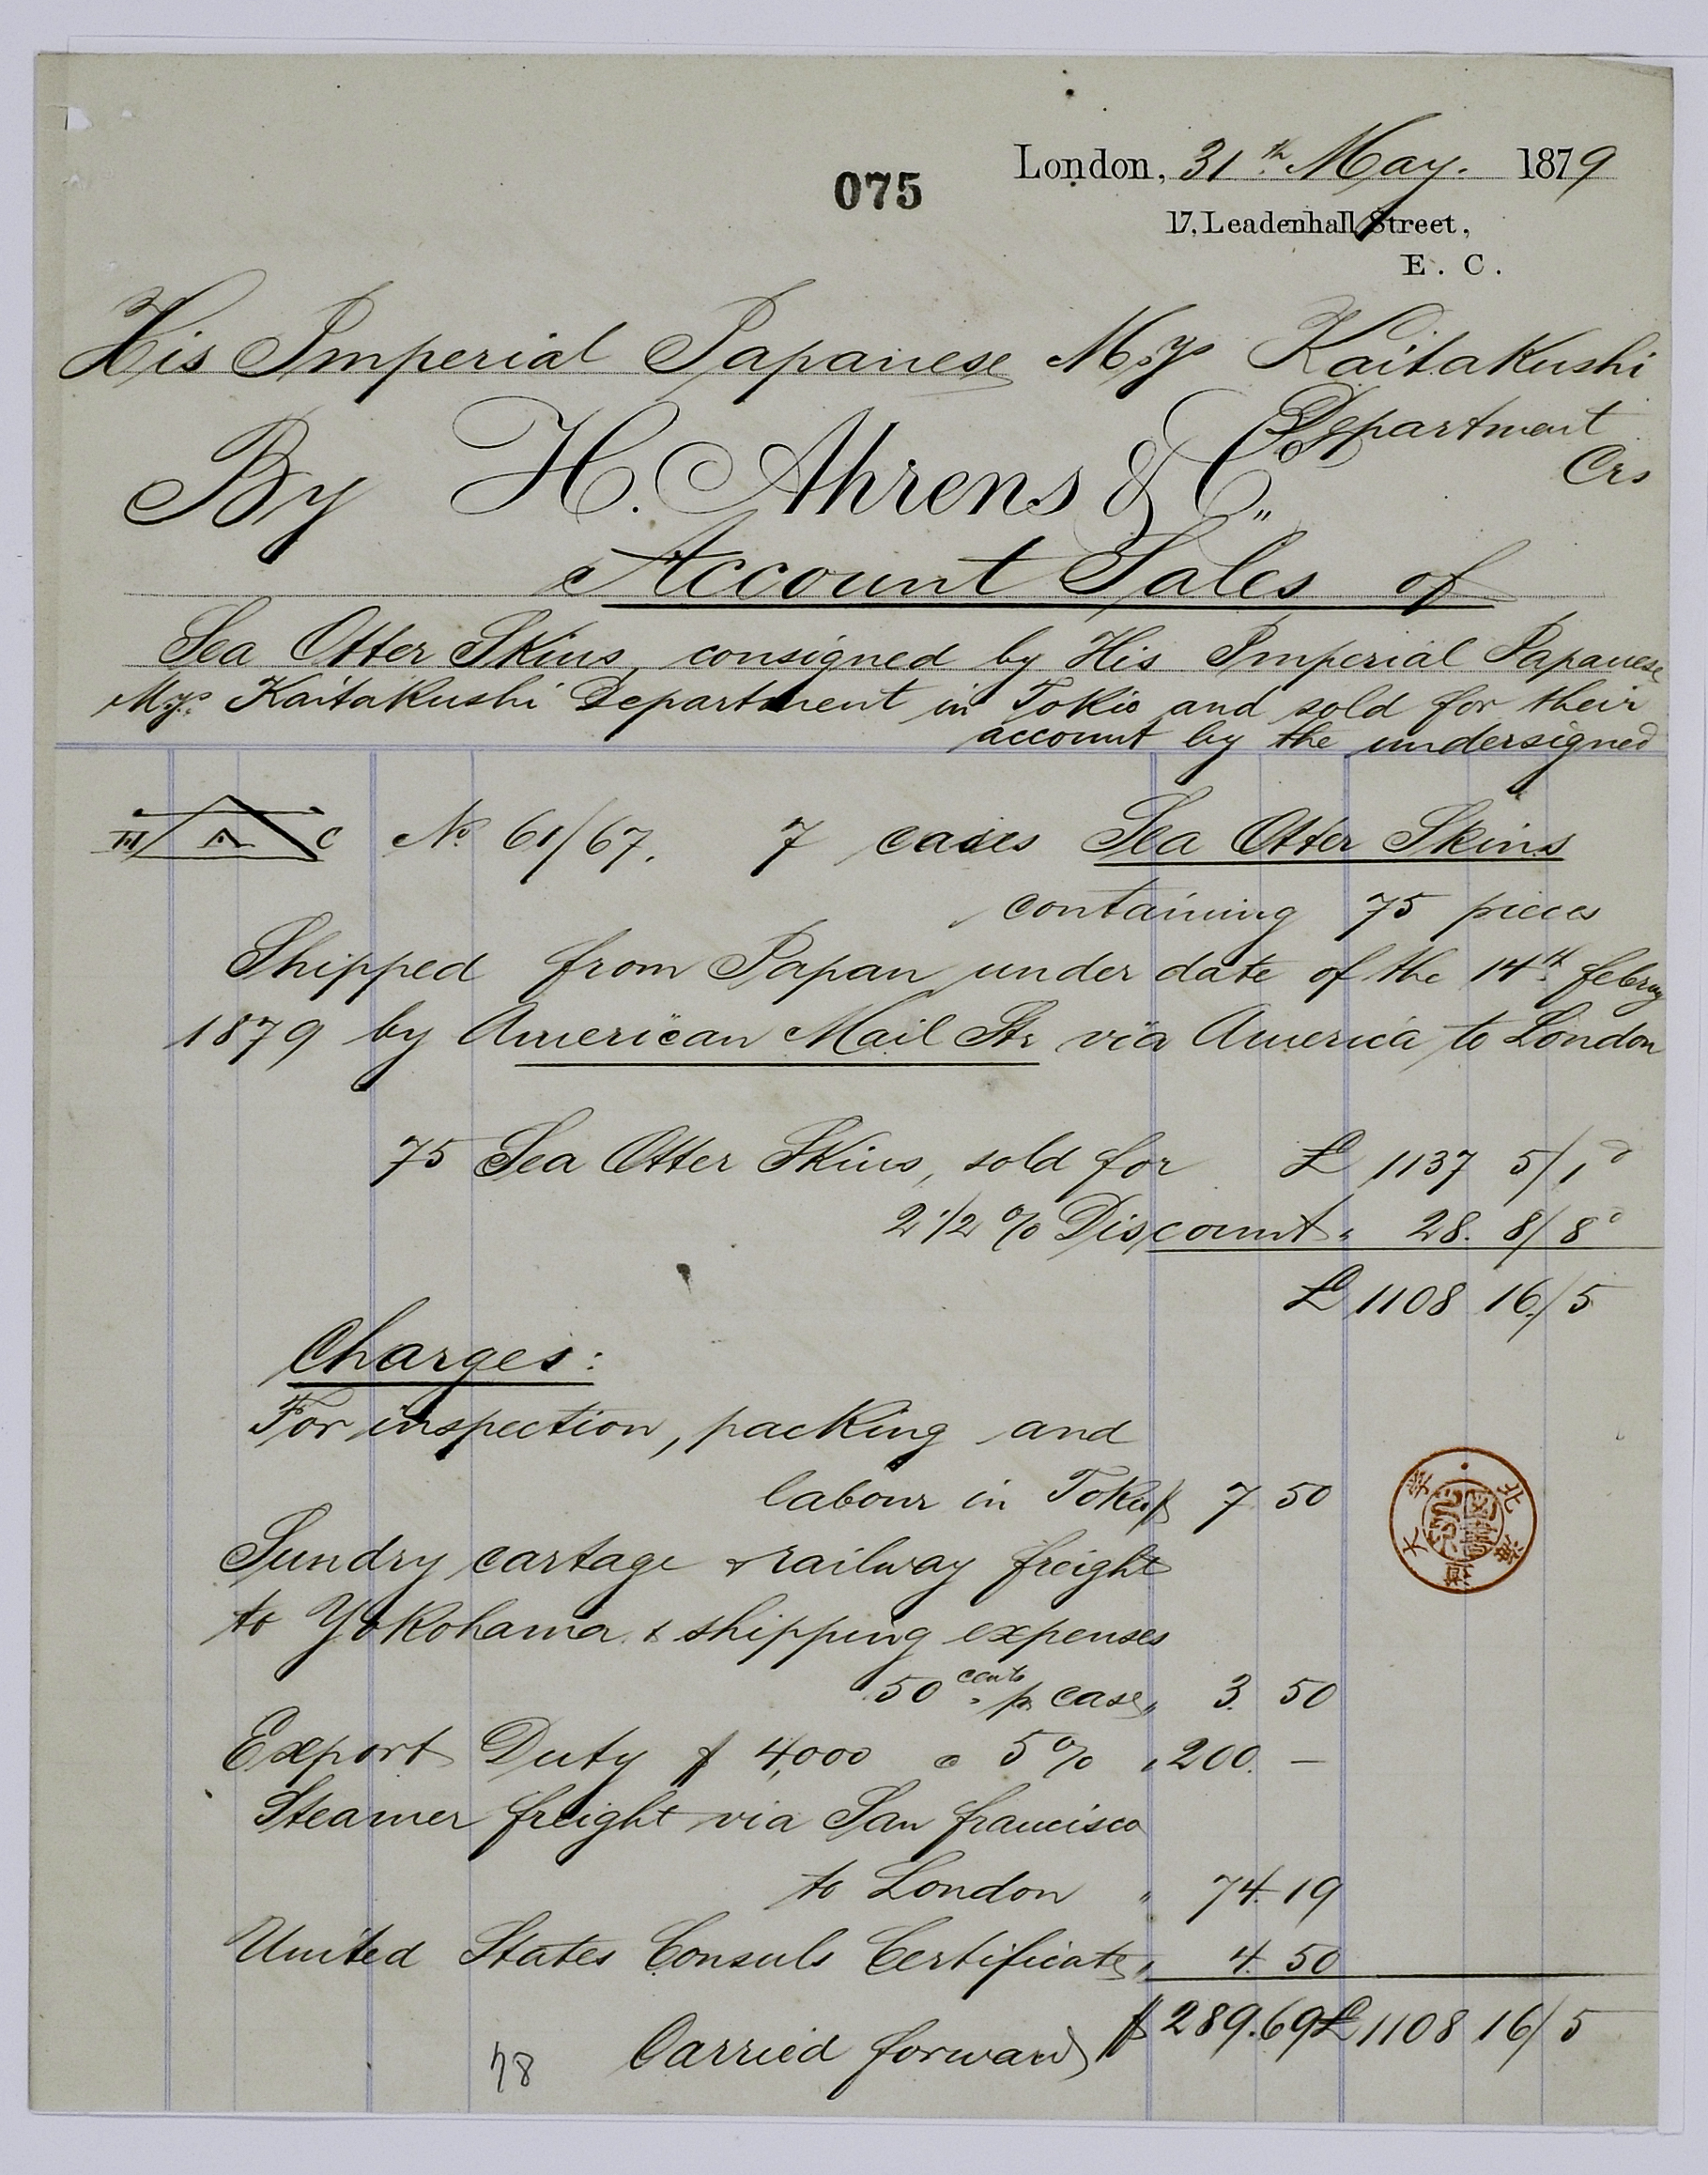 075
London, 31th May. 1879
17, Leadenhall Street,
E. C.
His Imperial Japanese Mjys Kaitakushi
Department
Crs
By H. Ahrens & Co,,
Account Sales of
Sea Otter Skins, consigned by His Imperial Japanese
Mjys Kaitakushi Department in Tokio and sold for their
account by the undersigned
III A C No 61/67. 7 cases Sea Otter Skins
containing 75 pieces
Shipped from Japan under date of the 14th febray
1879 by American Mail Str via America to London
75 Sea Otter Skins, sold for £ 1137 5/1d
2 1/2 % Discount " 28. 8/8d
£ 1108 16/5
Charges:
For inspection, packing and
labour in Tokio $ 7 50
Sundry cartage & railway freight
to Yokohama & shipping expenses
50 cents pr case " 3. 50
Export Duty $ 4,000 a 5% " 200. —
Steamer freight via San francisco
to London " 74. 19
United States Consuls Certificate " 4. 50
Carried forward $ 289.69 £ 1108 16/5
78
北海道大学